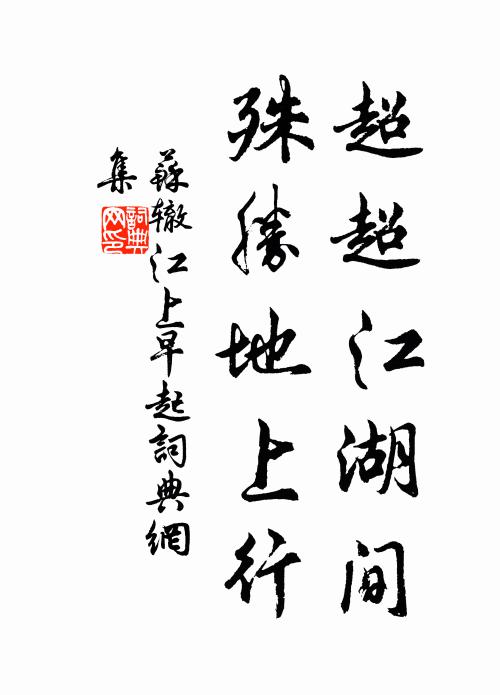 超超江湖間
殊勝地上行
蘇轍江上早起詞典網
集
詞典
网印